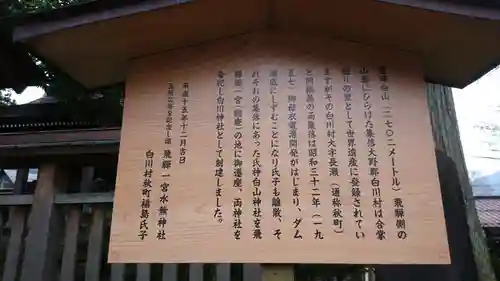 霊峰白山(二七〇二メートル)飛騨側の
山麓にひらけた集落大野郡白川村は合掌
造りの里として世界遺産に登録されてい
ますがその白川村大字長瀬(通称秋町)
と同福島の両集落は昭和三十二年(一九
五七)御母衣電源開発がはじまり、ダム
湖底にしずむことになり氏子も離散、そ
れぞれの集落にあった氏神白山神社を飛
騨一宮(臨座)の地に御遷座、両神社を
合祀し白川神社として創建しました。
平成十五年十二月吉日
飛騨一宮水無神社
白川村秋町福島氏子